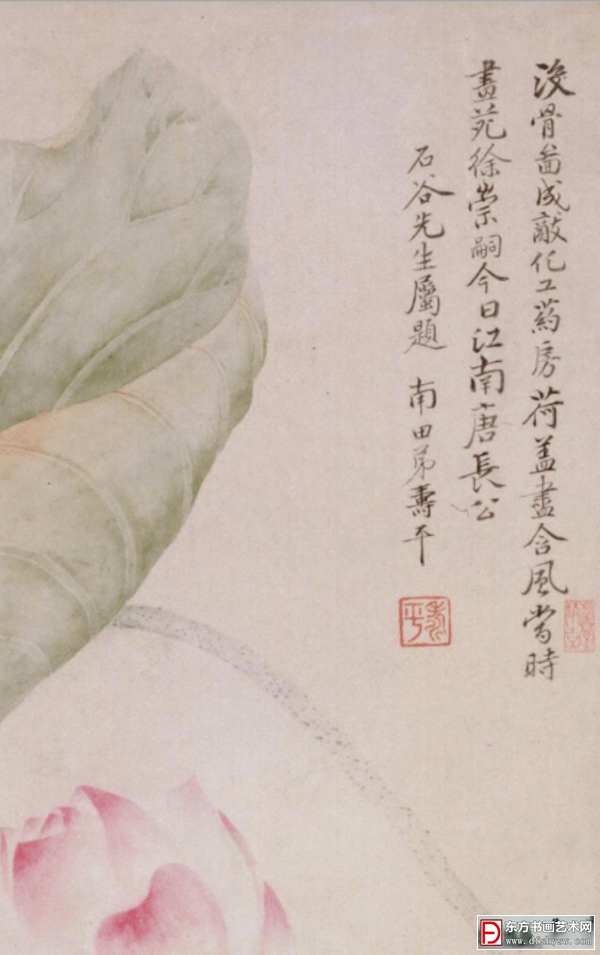 沒骨啚成敵化工葯房荷盖盡含風當時
畫苑徐崇嗣今日江南唐長公
石谷先生屬題　南田弟壽平
壽平
东方书画艺术网
www.dfshysw.com